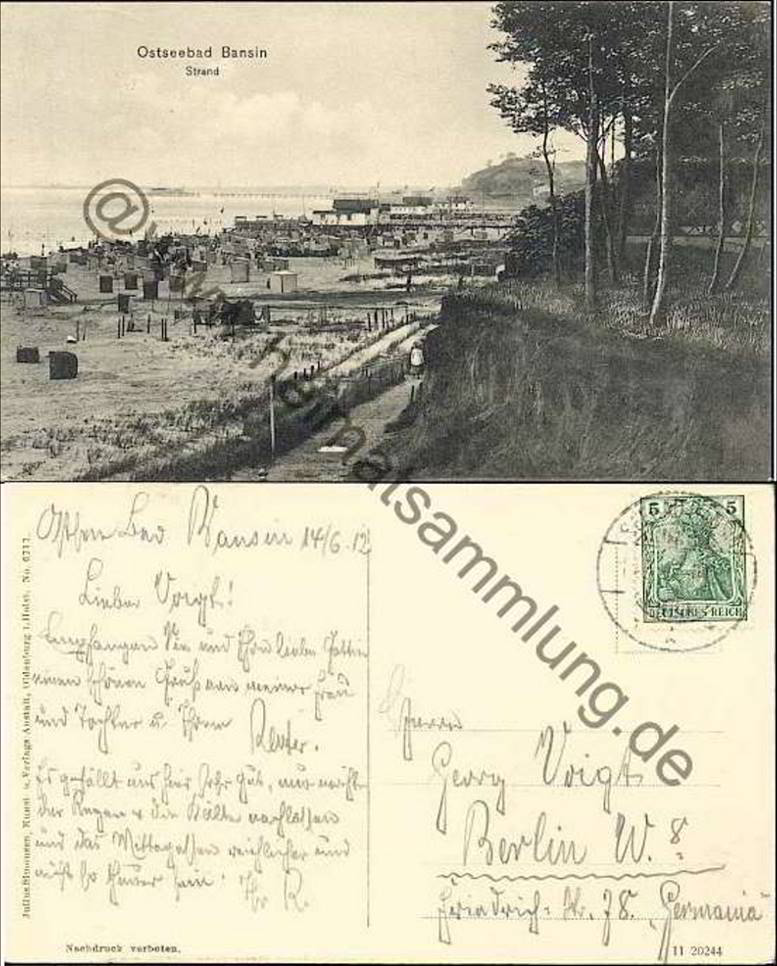 Ostseebad Bansin
Strand
@www.heimatsammlung.de
Ostsee Bad Bansin 14/6. 12
Lieber Voigt!
Empfangen Sie und Ihre liebe Gattin
einen schönen Gruß von meiner Frau
und Tochter u. Ihrem
Es gefällt uns hier sehr gut, nur möchte
der Regen u die Kälte nachlassen
und das Mittagessen reichlicher und
nicht so teuer sein. Ihr R.
Julius Simonsen, Kunst u. Verlags Anstalt, Oldenburg i. Holst. No. 6717.
Nachdruck verboten.
5 5
DEUTSCHES REICH
Herrn
Georg Voigt
Berlin W. 8
Friedrich-Str. 78. „Germania"
11 20244